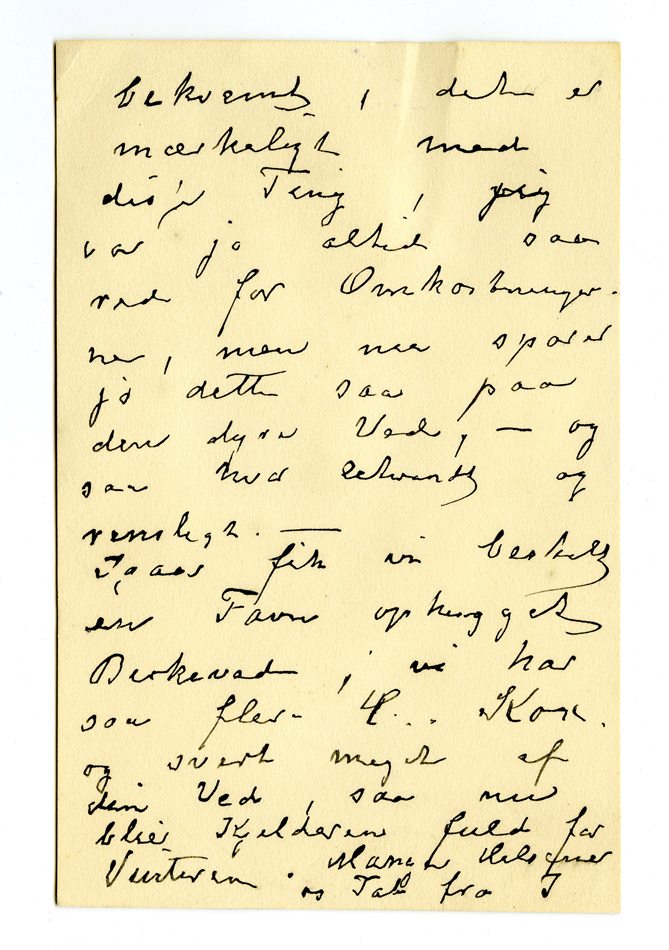 bekvemt, det er
mærkeligt med
disse Ting, jeg
var jo altid saa
red for Omkostninger-
ne, men nu sparer
jo dette saa paa
den dyre Ved, — og
saa hvor letvindt og
renslegt. —
Igaar fik vi bestilt
en Favn ophugget
Birkeved, vi har
saa flere H... Kox.
og svert meget af
den Ved, saa nu
blir Kjelderen fuld for
Vinteren. Mange Hilsener
og Tak fra I